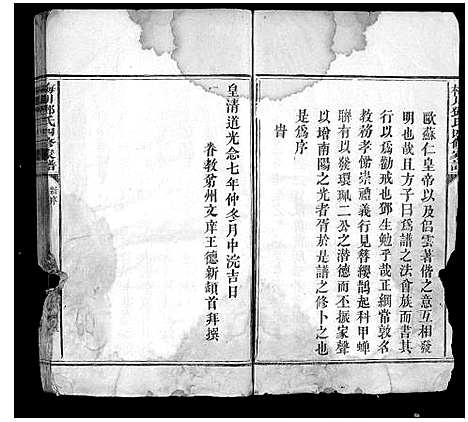 歐蘇仁皇帝以及侶雲著俗之意互相發
明也哉且方子曰爲譜之法會族而書其
行以爲勸戒也鄧生勉乎哉正綱常敦名
教務孝悌崇禮義行見簪纓鵲起科甲蟬
聯有以發環珮二公之潛德而丕振家聲
以增南陽之光者胥於是譜之修卜之也
是爲序
旹
皇清道光念七年仲冬月中浣吉日
眷教弟州文庠王德新頓首拜撰
梅川鄧氏四修家譜